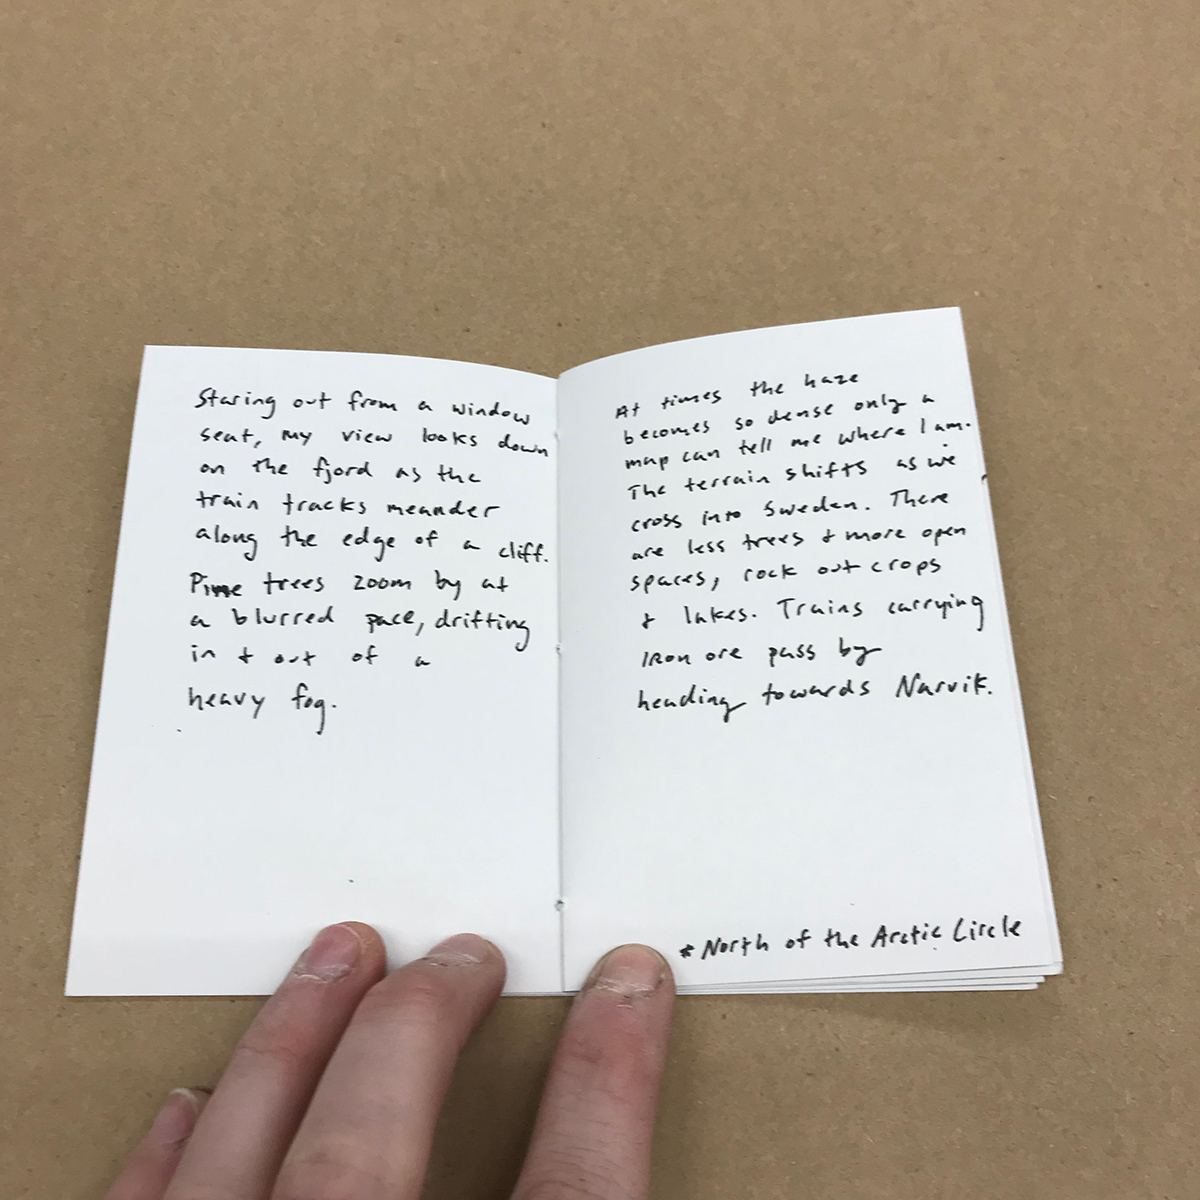 Staring out from a window
seat, my view looks down
on the fjord as the
train tracks meander
along the edge of a cliff.
Pine trees zoom by at
a blurred pace, drifting
in + out of a
heavy fog.
At times the haze
becomes so dense only a
map can tell me where I am.
The terrain shifts as we
cross into Sweden. There
are less trees + more open
spaces, rock out crops
+ lakes. Trains carrying
Iron ore pass by
heading towards Narvik.
* North of the Arctic Circle